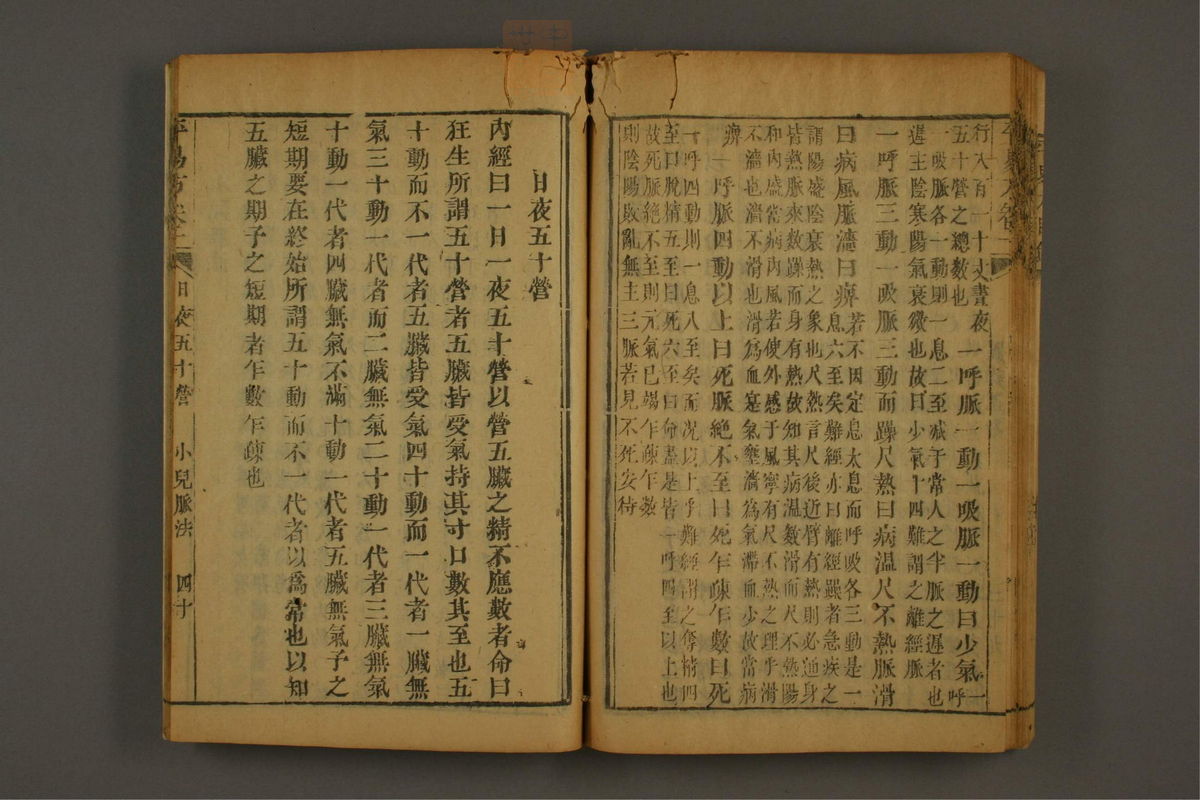 行八百一十丈晝夜
五十營之總數也
一呼脈一動一吸脈一動曰少氣
一呼
一吸脈各一動則一息二至減于常人之半脈之遲者也
遲主陰寒陽氣衰微也故曰少氣十四難謂之離經脈
一呼脈三動一吸脈三動而躁尺熱曰病溫尺不熱脈滑
曰病風脈濇曰痺
若不因定息太息而呼吸各三動是一
息六至矣難經亦曰離經躁者急疾之
謂陽盛陰衰熱之象也尺熱言尺後近臂有熱則必通身
皆熱脈來數躁而身有熱故知其病溫數滑而尺不熱陽
和內盛當病內風若使外感于風寧有尺不熱之理乎滑
不濇也濇不滑也滑為血實氣壅濇為氣滯血少故當病
痹
一呼脈四動以上曰死脈絕不至曰死乍疎乍數曰死
一呼四動則一息八至矣而况以上乎難經謂之奪精四
至曰脫精五至曰死六至曰命盡是皆一呼四至以上也
故死脈絕不至則元氣已竭乍疎乍數
則陰陽敗亂無主三脈若見不死安待
日夜五十營
內經曰一日一夜五十營以營五臟之精不應數者命曰
狂生所謂五十營者五臟皆受氣持其寸口數其至也五
十動而不一代者五臟皆受氣四十動而一代者一臟無
氣三十動一代者而二臟無氣二十動一代者三臟無氣
十動一代者四臟無氣不滿十動一代者五臟無氣子之
短期要在終始所謂五十動而不一代者以為常也以知
五臟之期子之短期者乍數乍疎也
日夜五十營 小兒脈法 四十